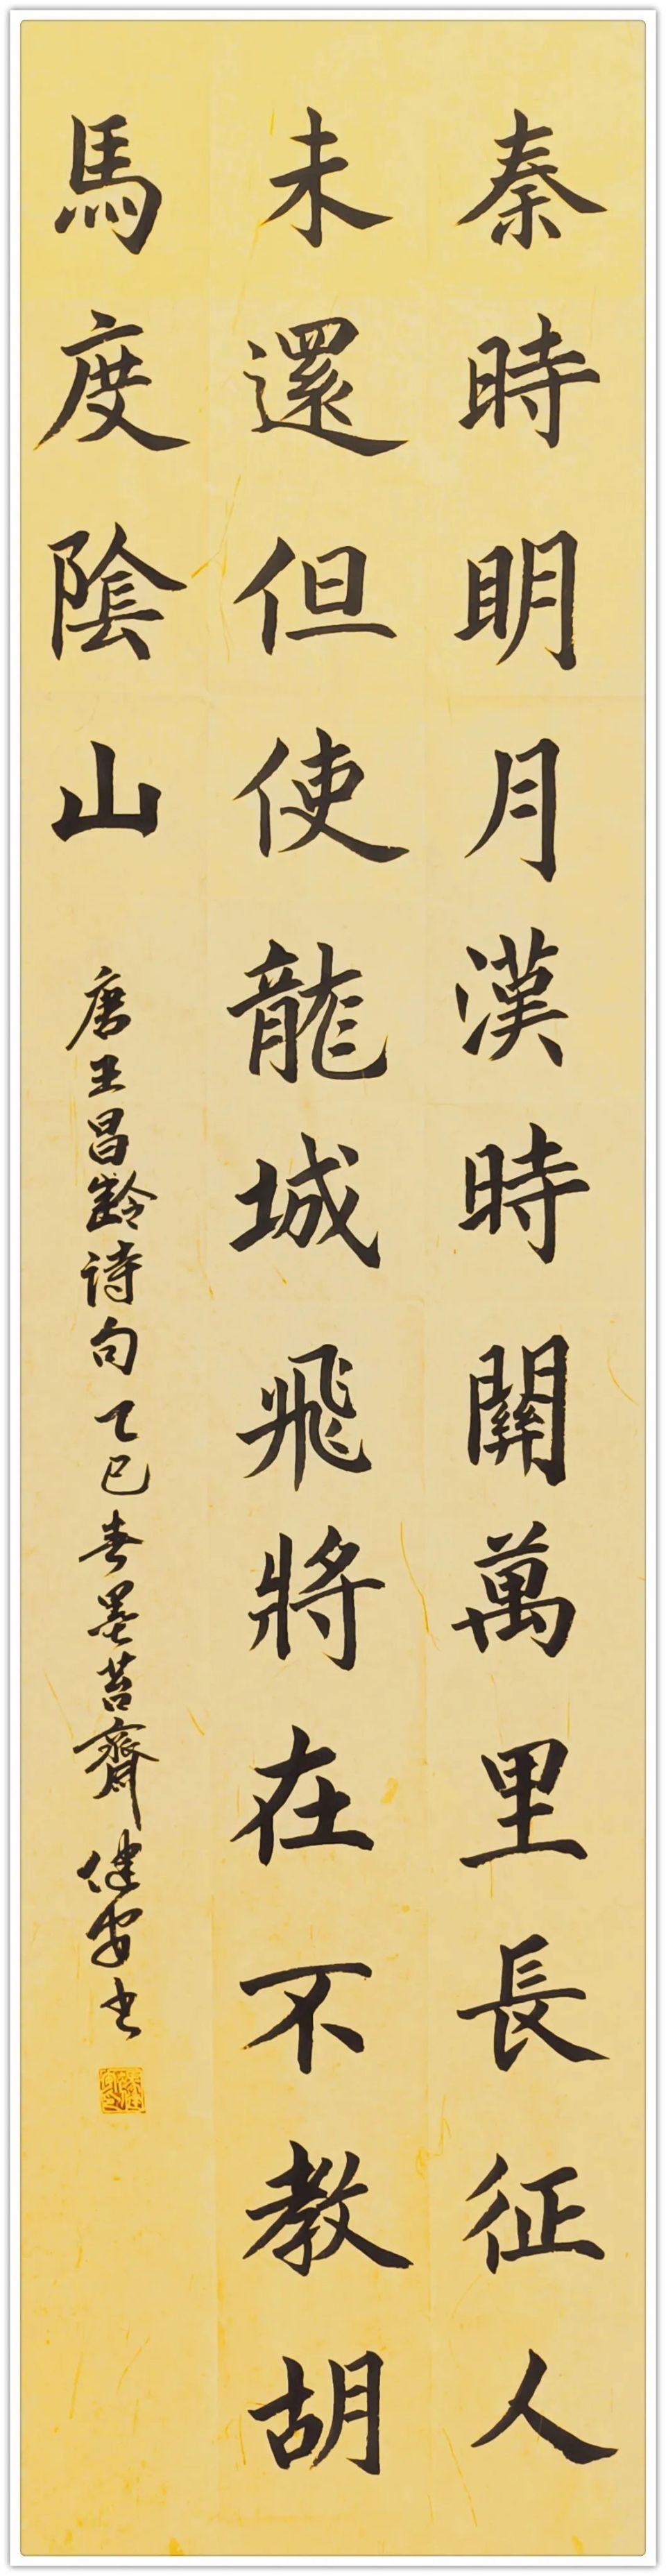 秦時明月漢時關萬里長征人
未還但使龍城飛將在不教胡
馬度陰山
唐王昌齡诗句乙巳春墨苔齋健安书